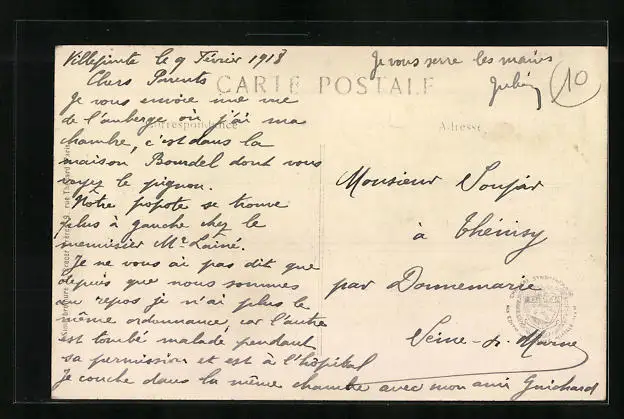 Villepinte le 9 Février 1918
Chers Parents
Je vous envoie une vue
de l'auberge où j'ai ma
chambre, c'est dans la
maison Bourdel dont vous
voyez le pignon.
Notre popote se trouve
plus à gauche chez le
menuisier Mr Lainé.
Je ne vous ai pas dit que
depuis que nous sommes
au repos je n'ai plus le
même ordonnance, car l'autre
est tombé malade pendant
sa permission et est à l'hôpital
Je couche dans la même chambre avec mon ami Guichard
Je vous serre les mains
10
CARTE POSTALE
Correspondance
Adresse
Monsieur
à Thénisy
par Donnemarie
Seine-&-Marne